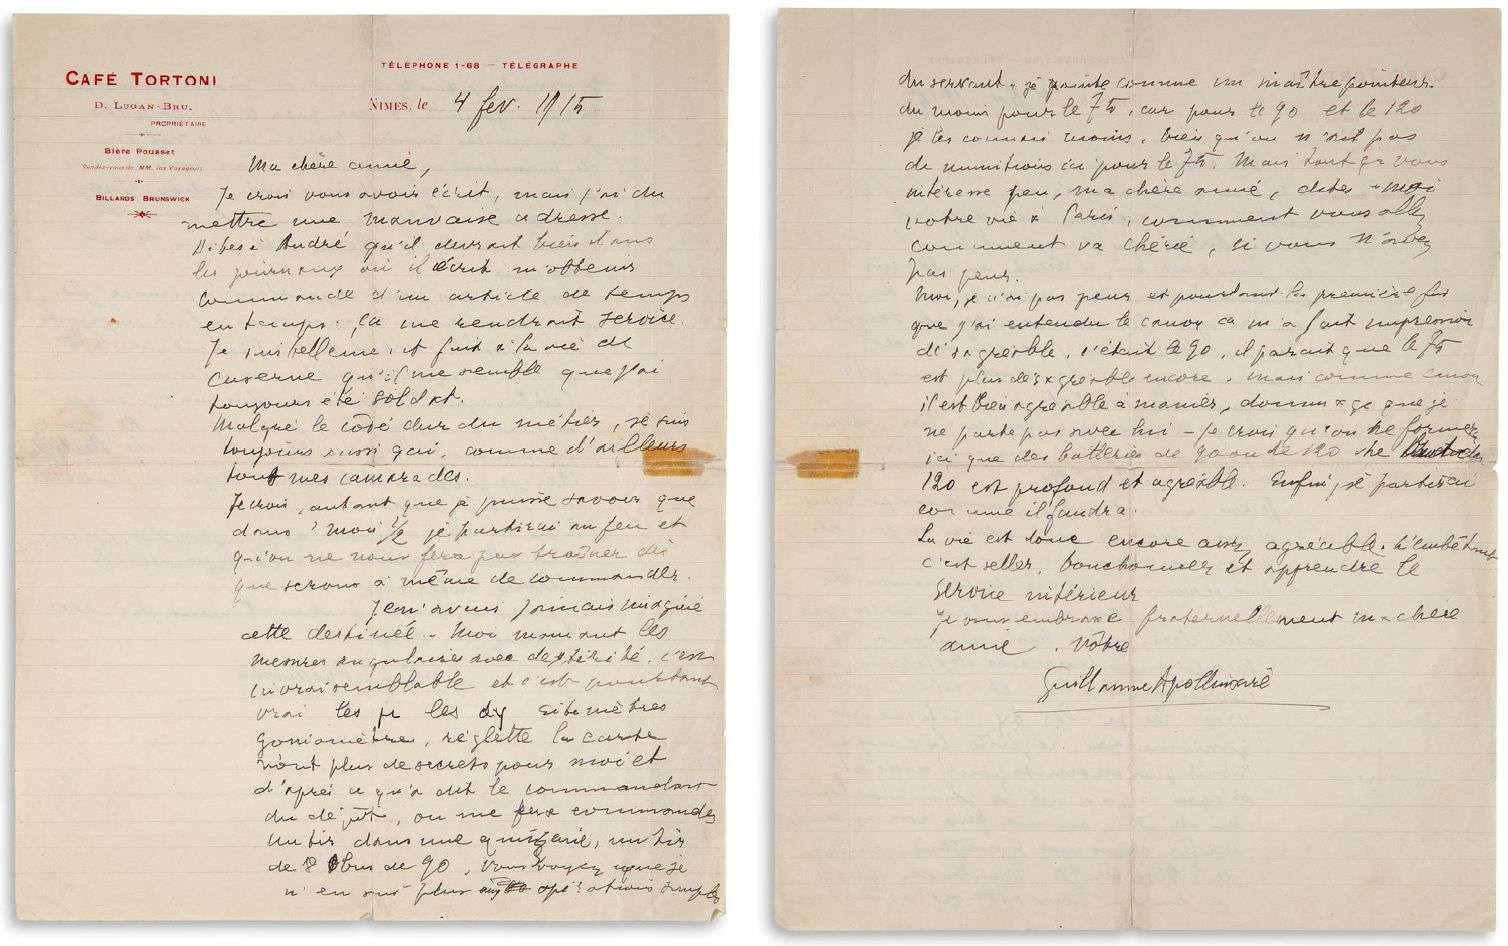 CAFÉ TORTONI
D. LUGAN-BRU.
PROPRIÉTAIRE
Bière Pousset
Rendez-vous de MM. les Voyageurs
BILLARDS BRUNSWICK
TÉLÉPHONE 1-68 — TÉLÉGRAPHE
NIMES, le 4 fev. 1915
Ma chère amie,
Je crois vous avoir écrit, mais j'ai du
mettre une mauvaise adresse.
Dites à André qu'il devrait bien dans
les journaux où il écrit m'obtenir
commande d'un article de temps
en temps. Ça me rendrait service.
Je suis bellement fait à la vie de
caserne qu'il me semble que j'ai
toujours été soldat.
Malgré le côté dur du métier, je suis
toujours aussi gai, comme d'ailleurs
tous mes camarades.
Je crois, autant que je puisse savoir que
dans 1 mois 1/2 je partirai au feu et
qu'on ne nous fera pas traîner dès
que serons à même de commander.
Je n'avais jamais imaginé
cette destinée. Moi maniant les
mesures angulaires avec dextérité, c'est
invraisemblable et c'est pourtant
vrai les les sitomètres
goniomètre, réglette la carte
n'ont plus de secrets pour moi et
d'après ce qu'a dit le commandant
du dépôt, on me fera commander
un tir dans une quinzaine, un tir
de 8 obus de 90. Vous voyez que je
n'en suis plus aux opérations simples
du servant. je pointe comme un maître pointeur.
du moins pour le 75, car pour le 90 et le 120
je les connais moins, bien qu'on n'ait pas
de munitions ici pour le 75. Mais tout ça vous
intéresse peu, ma chère amie, dites-moi
votre vie à Paris, comment vous allez
comment va chérie, si vous n'avez
pas peur.
Moi, je n'ai pas peur et pourtant la première fois
que j'ai entendu le canon ça m'a fait impression
désagréable, c'était le 90, il paraît que le 75
est plus désagréable encore. Mais comme canon
il est bien agréable à manier, dommage que je
ne parte pas avec lui — Je crois qu'on ne formera
ici que des batteries de 90 ou de 120 ne
120 est profond et agréable. Enfin, je partirai
comme il faudra.
La vie est donc encore assez agréable. L'embêtant
c'est seller, bouchonner et apprendre le
service intérieur
Je vous embrasse fraternellement ma chère
amie. Vôtre
Guillaume Apollinaire